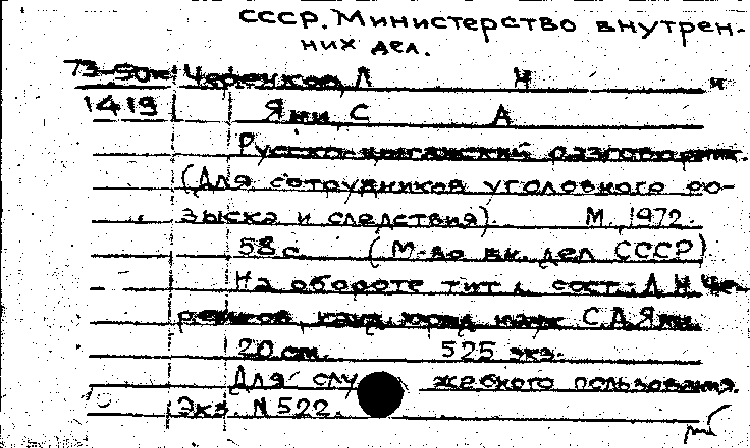 СССР. Министерство внутрен-
них дел.
73-50к Черенков Л Н и
1419 Яни С А
Русско-цыганский разговорник.
(Для сотрудников уголовного ро-
зыска и следствия). М., 1972.
58 с. (М-во вн. дел СССР)
На обороте тит. л. сост.: Л.Н. Че-
ренков, канд. юрид. наук С.А. Яни.
20 см. 525 экз.
Для служебного пользования.
Экз N 522.